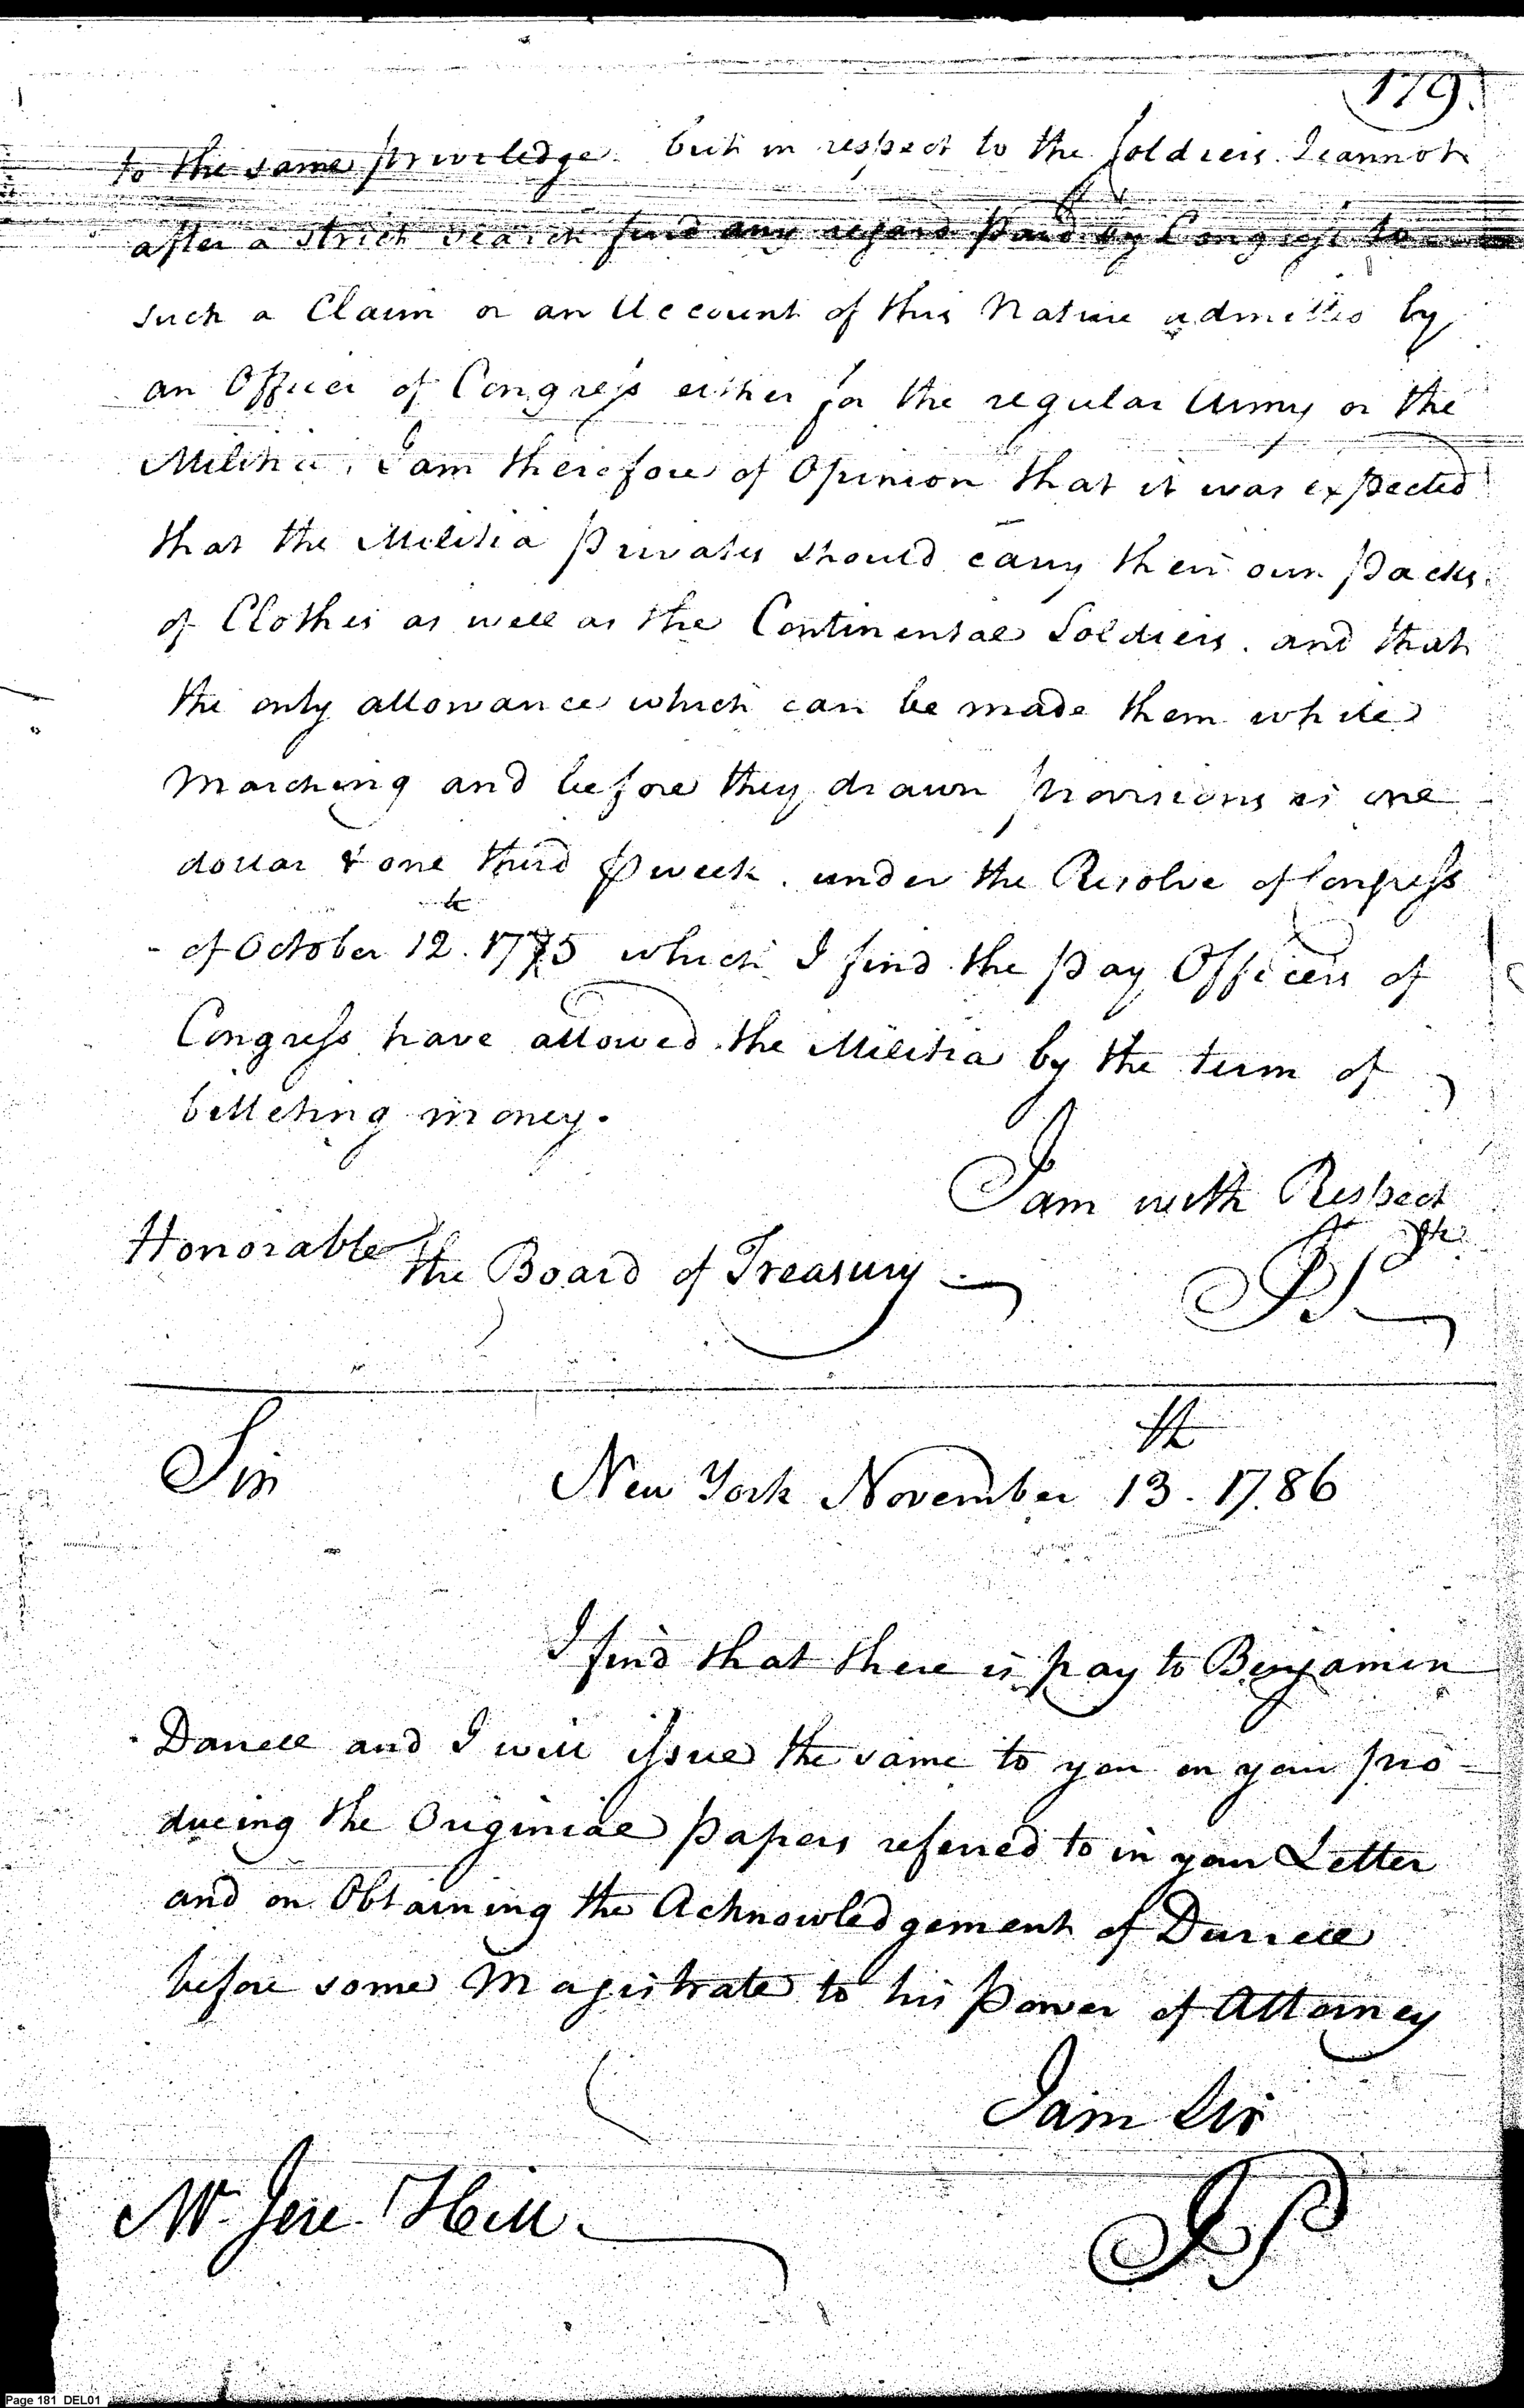 179.
to the same priviledge. but in respect to the soldiers I cannot
after a strict search find any regard paid by Congress to
such a Claim or an Account of this Nature admitted by
an Officer of Congress either for the regular Army or the
Militia. I am therefore of Opinion that it was expected
that the Militia Privates should carry their own packs
of Clothes as well as the Continental Soldiers. and that
the only allowance which can be made them while
marching and before they drawn provisions is one
dollar & one third ⅌ week. under the Resolve of Congress
of October 12.th 1775 which I find the pay Officers of
Congress have allowed the Militia by the term of
billeting money.
I am with Respect
&c
Honorable the Board of Treasury
JP
Sir New York November 13.th 1786
I find that there is pay to Benjamin
Durrell and I will issue the same to you on your pro-
ducing the Originial papers referred to in your Letter
and on Obtaining the Acknowledgement of Durrell
before some Magistrate to his Power of Attorney
I am Sir
Mr. Jere Hill.
JP
Page 181 DEL01